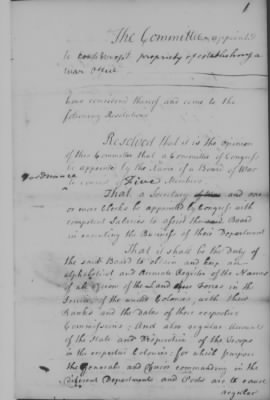 1
The Committee appointed
to consider of propriety of establishing a
war office
have considered thereof and come to the
following Resolutions
Resolved that it is the opinion
of this Committee that a Committee of Congress
be appointed by the Name of a Board of War
& Ordinance
to consist of Five Members.
That a Secretary and one
or more Clerks be appointed by Congress with
competent Salaries to assist the said Board
in executing the Business of their Department
That it shall be the Duty of
the said Board to obtain and keep an
alphabetical and accurate Register of the Names
of all Officers of the Land Forces in the
Service of the united Colonies, with their
Ranks and the Dates of their respective
Commissions; And also regular Accounts
of the State and Disposition of the Troops
in the respective Colonies; for which purpose
the Generals and Officers commanding in the
different Departments and Posts are to cause
regular